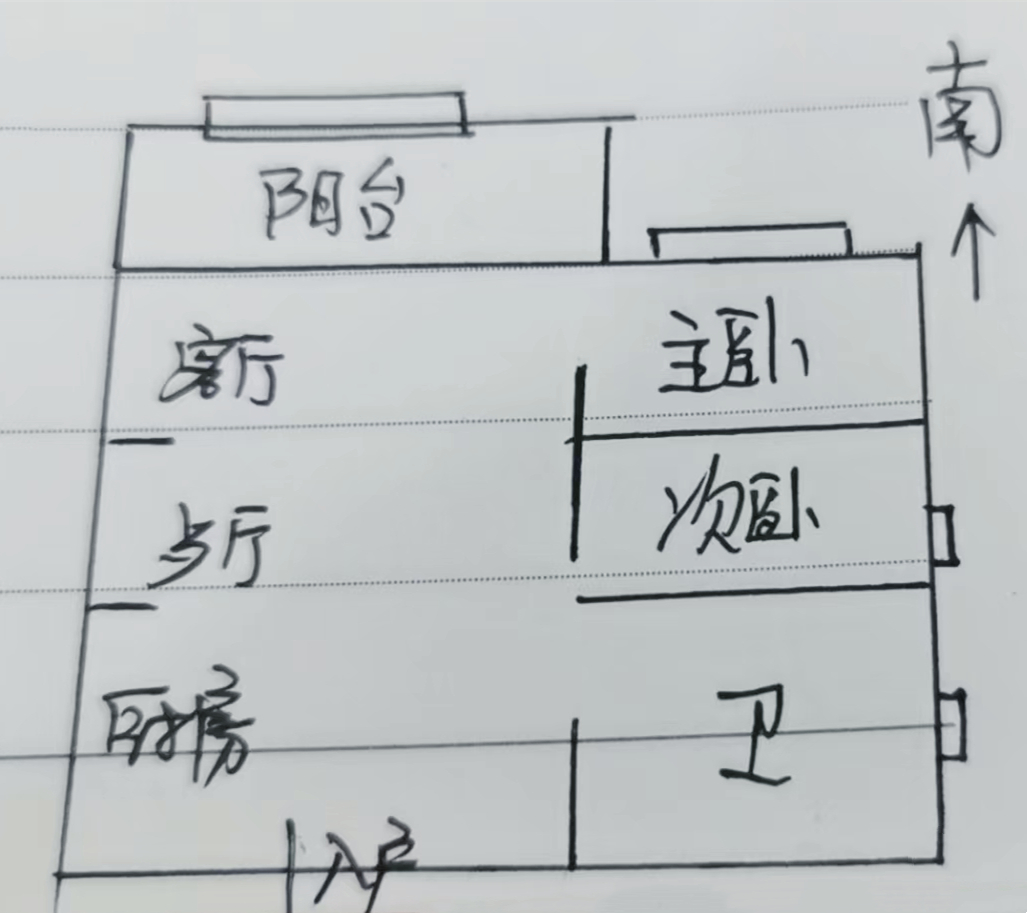 南
阳台
客厅
主卧
次卧
歺厅
厨房
卫
入户